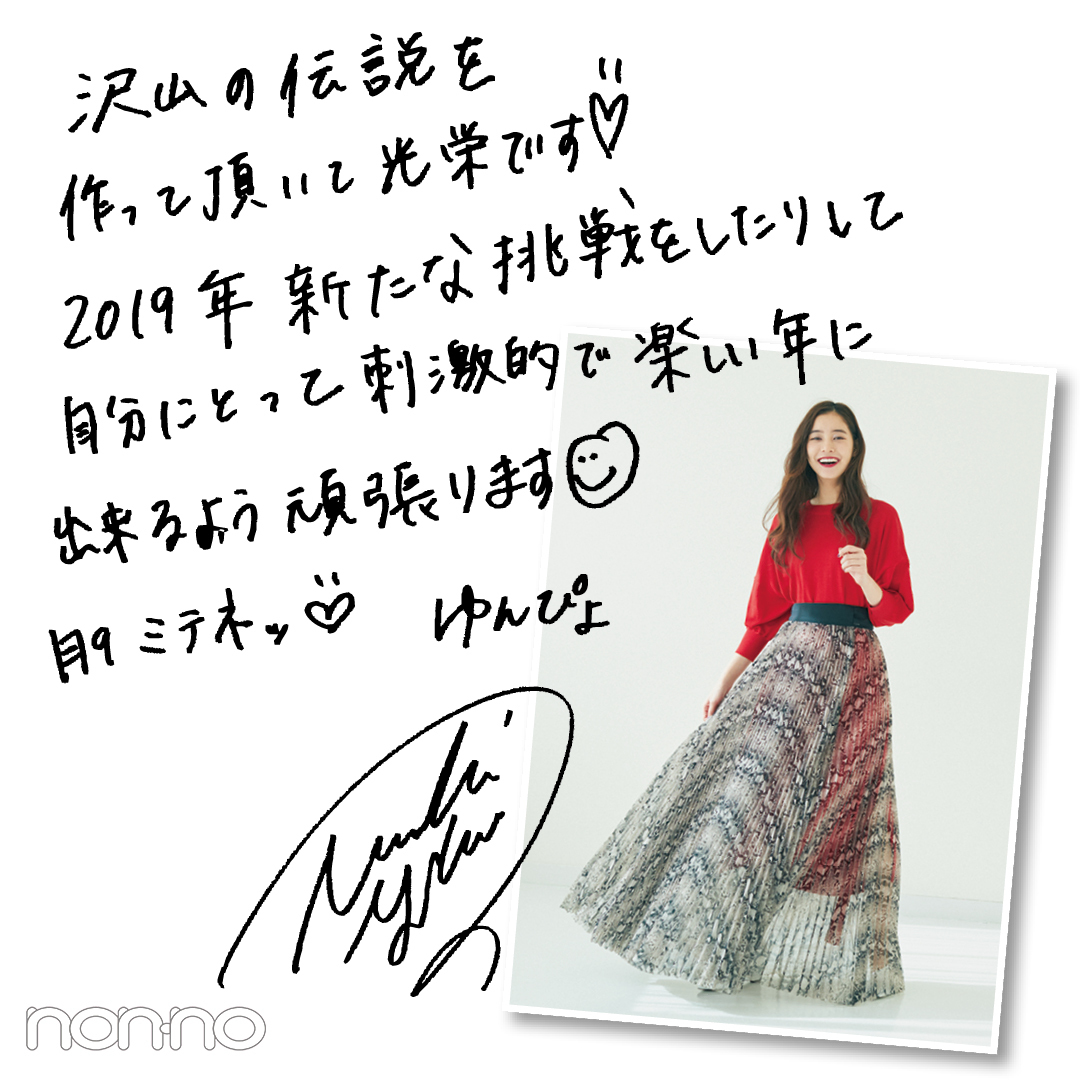 沢山の伝説を
作って頂いて光栄です♡
2019年 新たな挑戦をしたりして
自分にとって刺激的で楽しい年に
出来るよう頑張ります
月9 ミテネッ♡ ゆんぴょ
non-no